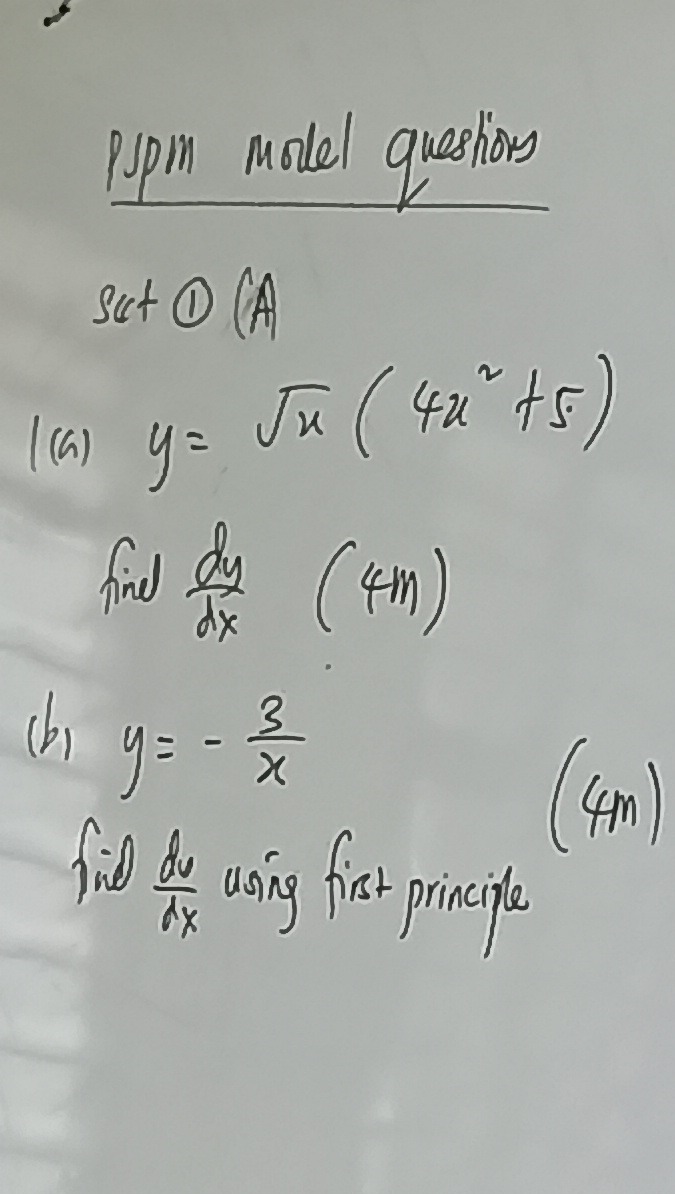 PSPM model questions
set ① (A
1(a) y = √x ( 4x² + 5 )
find dy/dx (4m)
(b) y = - 3/x
(4m)
find dy/dx using first principle